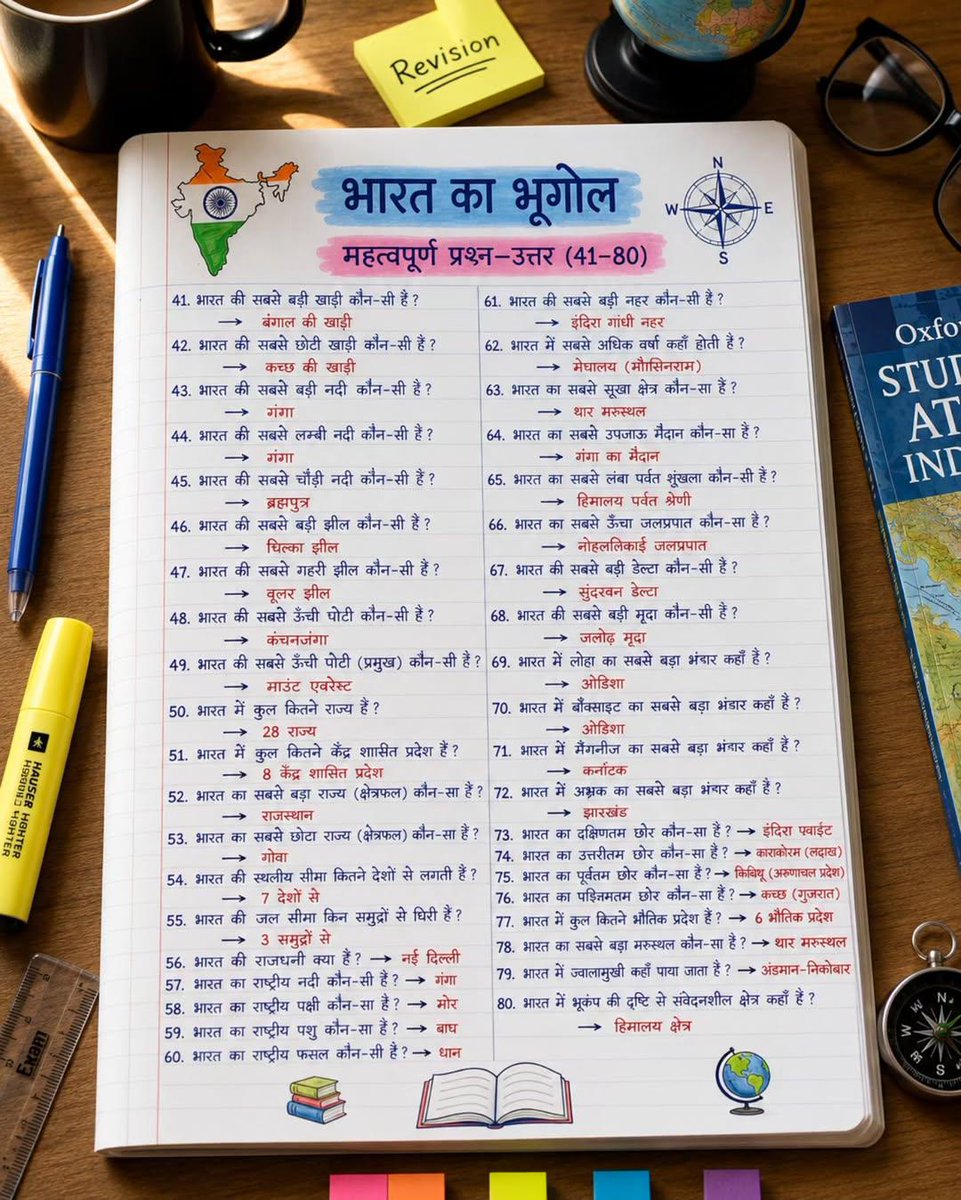 Revision
भारत का भूगोल
महत्वपूर्ण प्रश्न-उत्तर (41-80)
N
W E
S
41. भारत की सबसे बड़ी खाड़ी कौन-सी है ?
→ बंगाल की खाड़ी
42. भारत की सबसे छोटी खाड़ी कौन-सी है ?
→ कच्छ की खाड़ी
43. भारत की सबसे बड़ी नदी कौन-सी है ?
→ गंगा
44. भारत की सबसे लम्बी नदी कौन-सी है ?
→ गंगा
45. भारत की सबसे चौड़ी नदी कौन-सी है ?
→ ब्रह्मपुत्र
46. भारत की सबसे बड़ी झील कौन-सी है ?
→ चिल्का झील
47. भारत की सबसे गहरी झील कौन-सी है ?
→ वूलर झील
48. भारत की सबसे ऊँची पोटी कौन-सी है ?
→ कंचनजंगा
49. भारत की सबसे ऊँची पोटी (प्रमुख) कौन-सी है ?
→ माउंट एवरेस्ट
50. भारत में कुल कितने राज्य हैं ?
→ 28 राज्य
51. भारत में कुल कितने केंद्र शासित प्रदेश हैं ?
→ 8 केंद्र शासित प्रदेश
52. भारत का सबसे बड़ा राज्य (क्षेत्रफल) कौन-सा है ?
→ राजस्थान
53. भारत का सबसे छोटा राज्य (क्षेत्रफल) कौन-सा है ?
→ गोवा
54. भारत की स्थलीय सीमा कितने देशों से लगती है ?
→ 7 देशों से
55. भारत की जल सीमा किन समुद्रों से घिरी है ?
→ 3 समुद्रों से
56. भारत की राजधनी क्या है ? → नई दिल्ली
57. भारत का राष्ट्रीय नदी कौन-सी है ? → गंगा
58. भारत का राष्ट्रीय पक्षी कौन-सा है ? → मोर
59. भारत का राष्ट्रीय पशु कौन-सा है ? → बाघ
60. भारत का राष्ट्रीय फसल कौन-सी है ? → धान
61. भारत की सबसे बड़ी नहर कौन-सी है ?
→ इंदिरा गांधी नहर
62. भारत में सबसे अधिक वर्षा कहाँ होती है ?
→ मेघालय (मौसिनराम)
63. भारत का सबसे सूखा क्षेत्र कौन-सा है ?
→ थार मरुस्थल
64. भारत का सबसे उपजाऊ मैदान कौन-सा है ?
→ गंगा का मैदान
65. भारत का सबसे लंबा पर्वत शृंखला कौन-सी है ?
→ हिमालय पर्वत श्रेणी
66. भारत का सबसे ऊँचा जलप्रपात कौन-सा है ?
→ नोहललिकाई जलप्रपात
67. भारत की सबसे बड़ी डेल्टा कौन-सी है ?
→ सुंदरवन डेल्टा
68. भारत की सबसे बड़ी मृदा कौन-सी है ?
→ जलोढ़ मृदा
69. भारत में लोहा का सबसे बड़ा भंडार कहाँ है ?
→ ओडिशा
70. भारत में बॉक्साइट का सबसे बड़ा भंडार कहाँ है ?
→ ओडिशा
71. भारत में मैंगनीज का सबसे बड़ा भंडार कहाँ है ?
→ कर्नाटक
72. भारत में अभ्रक का सबसे बड़ा भंडार कहाँ है ?
→ झारखंड
73. भारत का दक्षिणतम छोर कौन-सा है ? → इंदिरा पवाईट
74. भारत का उत्तरीतम छोर कौन-सा है ? → काराकोरम (लद्दाख)
75. भारत का पूर्वतम छोर कौन-सा है ? → किबिथू (अरुणाचल प्रदेश)
76. भारत का पश्चिमतम छोर कौन-सा है ? → कच्छ (गुजरात)
77. भारत में कुल कितने भौतिक प्रदेश हैं ? → 6 भौतिक प्रदेश
78. भारत का सबसे बड़ा मरुस्थल कौन-सा है ? → थार मरुस्थल
79. भारत में ज्वालामुखी कहाँ पाया जाता है ? → अंडमान-निकोबार
80. भारत में भूकंप की दृष्टि से संवेदनशील क्षेत्र कहाँ है ?
→ हिमालय क्षेत्र
Oxfo
STUD
AT
IND
HAUSER
Exam
N
W
S